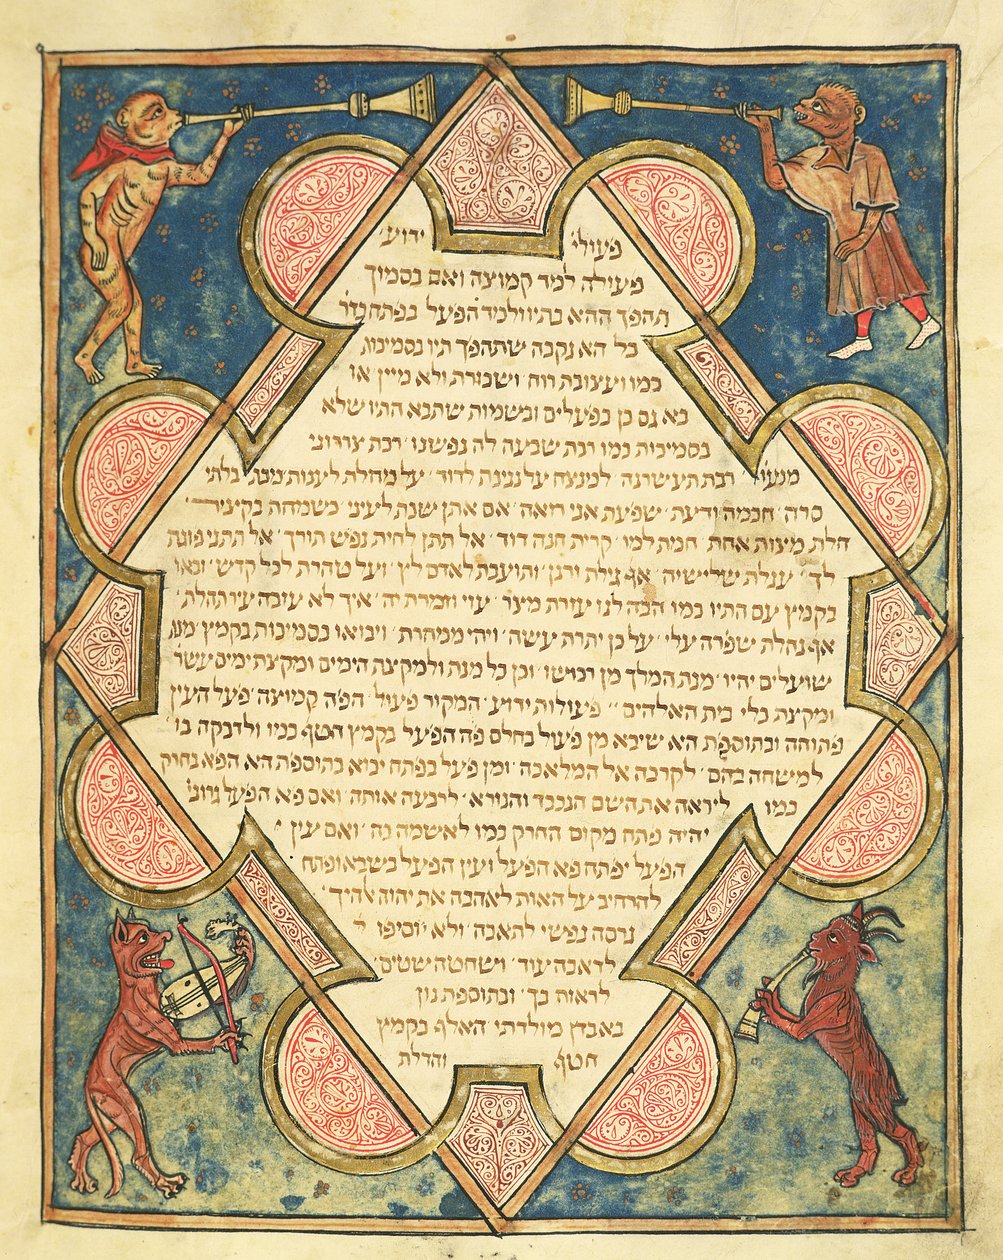 פעולי ידוע׳
פעולה למד קמוצה ואם בסמוך
תהפך ההא בתיו ולמד הפעל בפתח
כל הא נקבה שתהפך תיו בסמיכות
כמו ועצובת רוח׳ ושכורת ולא מיין׳ או
בא גם כן בפעלים ובשמות שתבא התיו שלא
בסמיכות כמו רבת שבעה לה נפשנו׳ רבת צררוני
מנעורי׳ רבת תעשרנה׳ למנצח על נגינת לדוד׳ על מחלת לענות׳ מכת׳ בלתי
סרה׳ חכמה ודעת׳ שפעת אני רואה׳ אם אתן שנת לעיני׳ כשמחה בקציר
חלת מצות אחת׳ חמת למו׳ קרית חנה דוד׳ אל תתן לחית נפש תורך׳ אל תתני פוגת
לך׳ עגלת שלישיה׳ אף גילת ורנן׳ ותועבת לאדם לץ׳ ועל טהרת לכל קדש׳ ובאו
בקמץ עם התיו כמו הבה לנו עזרת מצר׳ עזי וזמרת יה׳ איך לא עזבה עיר תהלת׳
אף נחלת שפרה עלי׳ על כן יתרת עשה׳ ויהי ממחרת׳ ויבואו בסמיכות בקמץ׳ מנת
שועלים יהיו׳ מנת המלך מן רכושו׳ וכן כל מנת ולמקצת הימים ומקצת ימים עשר
ומקצת כלי בית האלהים׳׳ פעולות ידוע׳ המקור פעול׳ הפה קמוצה׳ פעל העין
פתוחה ובתוספת הא שיבא מן פעול בחלם פה הפעל בקמץ חטף כמו ולדבקה בו׳
למשחה בהם׳ לקרבה אל המלאכה׳ ומן פעל בפתח יבוא בתוספת הא הפא בחירק
כמו ליראה את השם הנכבד והנורא׳ לרבעה אותה׳ ואם פא הפעל גרוני
יהיה פתח מקום החרק כמו לאשמה בה׳ ואם עין
הפעל יפתח פא הפעל ועין הפעל בשבא ופתח
להרחיב על האות לאהבה את יהוה אלהיך׳
גרסה נפשי לתאבה׳ ולא יוסיפו ל
לדאבה עוד׳ ושחטה שטים׳
לראוה בך׳ ובתוספת נון
באבדן מולדתי׳ האלף בקמץ
חטף והדלת